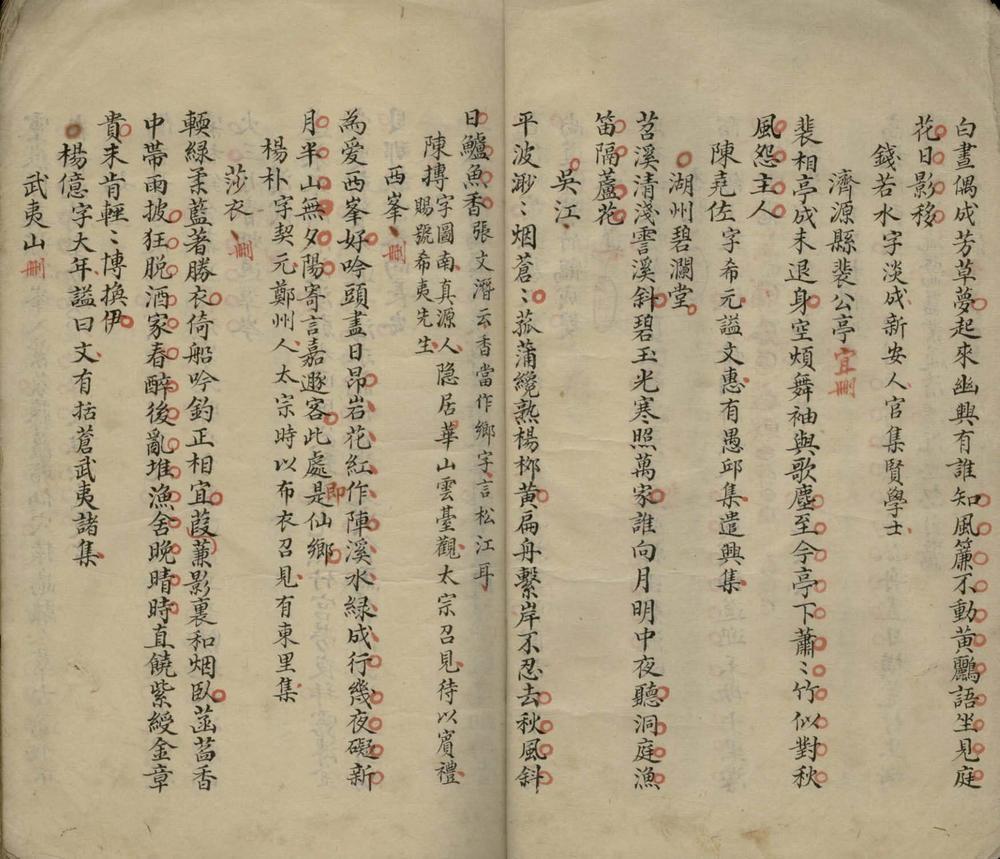 白晝偶成芳草夢起來幽興有誰知風簾不動黃鸝語坐見庭
花日影移
錢若水字淡成新安人官集賢學士
濟源縣裴公亭宜刪
裴相亭成未退身空煩舞袖與歌塵至今亭下蕭〻竹似對秋
風怨主人
陳堯佐字希元謚文惠有愚邱集遣興集
湖州碧瀾堂
苕溪清淺霅溪斜碧玉光寒照萬家誰向月明中夜聽洞庭漁
笛隔蘆花
吳江
平波渺〻烟蒼〻菰蒲纔熟楊柳黃扁舟繫岸不忍去秋風斜
日鱸魚香張文潛云香當作鄉字言松江耳
陳摶字圖南真源人隐居華山雲臺觀太宗召見待以賓禮
賜號希夷先生
西峯刪
為愛西峯好吟頭盡日昂岩花紅作陣溪水綠成行幾夜礙新
月半山無夕陽寄言嘉遯客此處是仙鄉
即
楊朴字契元鄭州人太宗時以布衣召見有東里集
莎衣刪
輭綠柔藍著勝衣倚船吟釣正相宜葭蒹影裏和烟臥菡萏香
中帶雨披狂脫酒家春醉後亂堆漁舍晚晴時直饒紫綬金章
貴未肯輕〻博換伊
楊億字大年謚曰文有括蒼武夷諸集
武夷山刪